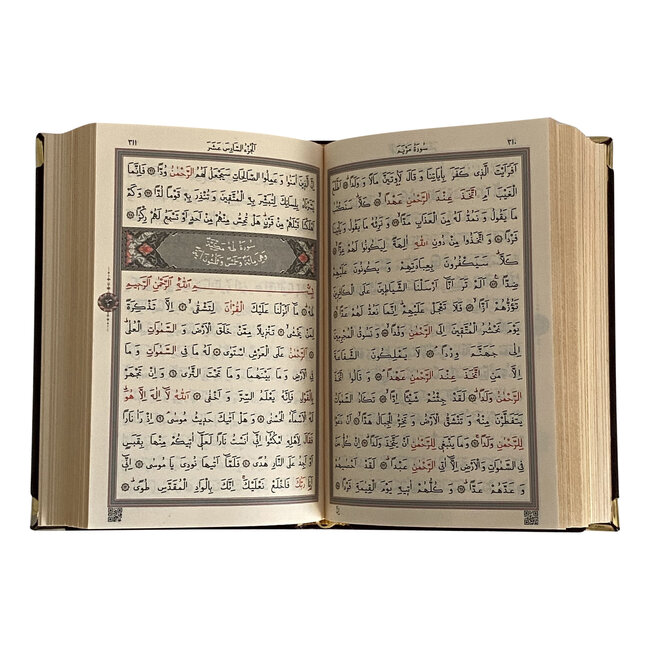 ٣١٠ سُورَةُ مَرْيَمَ
اَفَرَاَيْتَ الَّذِي كَفَرَ بِاٰيَاتِنَا وَ قَالَ لَاُوتَيَنَّ مَالًا وَ وَلَدًاۜ ۞ اَطَّلَعَ
الْغَيْبَ اَمِ اتَّخَذَ عِنْدَ الرَّحْمٰنِ عَهْدًاۙ ۞ كَلَّاۜ سَنَكْتُبُ
مَا يَقُولُ وَ نَمُدُّ لَهُ مِنَ الْعَذَابِ مَدًّاۙ ۞ وَ نَرِثُهُ مَا يَقُولُ وَ يَأْتِينَا
فَرْدًا ۞ وَ اتَّخَذُوا مِنْ دُونِ اللّٰهِ اٰلِهَةً لِيَكُونُوا لَهُمْ عِزًّاۙ ۞
كَلَّاۜ سَيَكْفُرُونَ بِعِبَادَتِهِمْ وَ يَكُونُونَ عَلَيْهِمْ
ضِدًّا۟ ۞ اَلَمْ تَرَ اَنَّا اَرْسَلْنَا الشَّيَاطِينَ عَلَى الْكَافِرِينَ
تَؤُزُّهُمْ اَزًّاۙ ۞ فَلَا تَعْجَلْ عَلَيْهِمْۜ اِنَّمَا نَعُدُّ لَهُمْ عَدًّاۚ ۞
يَوْمَ نَحْشُرُ الْمُتَّقِينَ اِلَى الرَّحْمٰنِ وَفْدًاۙ ۞ وَ نَسُوقُ الْمُجْرِمِينَ
اِلٰى جَهَنَّمَ وِرْدًاۢ ۞ لَا يَمْلِكُونَ الشَّفَاعَةَ
اِلَّا مَنِ اتَّخَذَ عِنْدَ الرَّحْمٰنِ عَهْدًاۢ ۞ وَ قَالُوا اتَّخَذَ
الرَّحْمٰنُ وَلَدًاۜ ۞ لَقَدْ جِئْتُمْ شَيْـًٔا اِدًّاۙ ۞ تَكَادُ السَّمٰوَاتُ
يَتَفَطَّرْنَ مِنْهُ وَ تَنْشَقُّ الْاَرْضُ وَ تَخِرُّ الْجِبَالُ هَدًّاۙ ۞ اَنْ دَعَوْا
لِلرَّحْمٰنِ وَلَدًاۚ ۞ وَ مَا يَنْبَغِي لِلرَّحْمٰنِ اَنْ يَتَّخِذَ وَلَدًاۜ ۞ اِنْ كُلُّ مَنْ
فِي السَّمٰوَاتِ وَ الْاَرْضِ اِلَّا اٰتِي الرَّحْمٰنِ عَبْدًاۜ ۞ لَقَدْ اَحْصٰيهُمْ
وَ عَدَّهُمْ عَدًّاۜ ۞ وَ كُلُّهُمْ اٰتِيهِ يَوْمَ الْقِيٰمَةِ فَرْدًا ۞
اَلْجُزْءُ السَّادِسَ عَشَرَ ٣١١
اِنَّ الَّذِينَ اٰمَنُوا وَ عَمِلُوا الصَّالِحَاتِ سَيَجْعَلُ لَهُمُ الرَّحْمٰنُ وُدًّا ۞ فَاِنَّمَا
يَسَّرْنَاهُ بِلِسَانِكَ لِتُبَشِّرَ بِهِ الْمُتَّقِينَ وَ تُنْذِرَ بِهِ قَوْمًا لُدًّا ۞ وَ كَمْ
اَهْلَكْنَا قَبْلَهُمْ مِنْ قَرْنٍۜ هَلْ تُحِسُّ مِنْهُمْ مِنْ اَحَدٍ اَوْ تَسْمَعُ لَهُمْ رِكْزًا ۞
سُورَةُ طٰهٰ مَكِّيَّةٌ
وَهِيَ مِائَةٌ وَخَمْسٌ وَثَلٰثُونَ اٰيَةً
بِسْمِ اللّٰهِ الرَّحْمٰنِ الرَّحِيمِ
طٰهٰۜ ۞ مَا اَنْزَلْنَا عَلَيْكَ الْقُرْاٰنَ لِتَشْقٰىۙ ۞ اِلَّا تَذْكِرَةً
لِمَنْ يَخْشٰىۙ ۞ تَنْزِيلًا مِمَّنْ خَلَقَ الْاَرْضَ وَ السَّمٰوَاتِ الْعُلٰىۜ ۞
اَلرَّحْمٰنُ عَلَى الْعَرْشِ اسْتَوٰى ۞ لَهُ مَا فِي السَّمٰوَاتِ وَ مَا
فِي الْاَرْضِ وَ مَا بَيْنَهُمَا وَ مَا تَحْتَ الثَّرٰى ۞ وَ اِنْ تَجْهَرْ
بِالْقَوْلِ فَاِنَّهُ يَعْلَمُ السِّرَّ وَ اَخْفٰى ۞ اَللّٰهُ لَا اِلٰهَ اِلَّا هُوَۜ
لَهُ الْاَسْمَاءُ الْحُسْنٰى ۞ وَ هَلْ اَتٰيكَ حَدِيثُ مُوسٰىۢ ۞ اِذْ رَاٰ نَارًا
فَقَالَ لِاَهْلِهِ امْكُثُوا اِنِّي اٰنَسْتُ نَارًا لَعَلِّي اٰتِيكُمْ مِنْهَا بِقَبَسٍ
اَوْ اَجِدُ عَلَى النَّارِ هُدًى ۞ فَلَمَّا اَتٰيهَا نُودِيَ يَا مُوسٰىۜ ۞ اِنِّي
اَنَا رَبُّكَ فَاخْلَعْ نَعْلَيْكَۚ اِنَّكَ بِالْوَادِ الْمُقَدَّسِ طُوًىۜ ۞